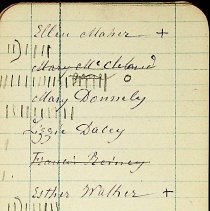 Ellen Maher +
Mary McCleland
Mary Donnely
Lizzie Daley
Francis
Esther Walker +